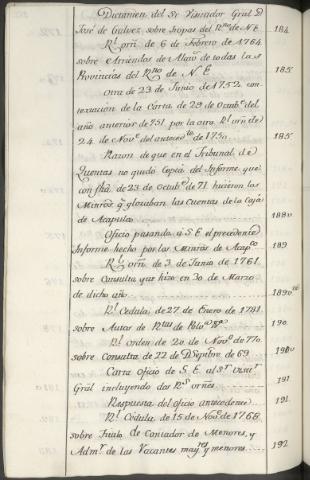 Dictamen del Sr Visitador Gral Dn
José de Galvez sobre tropas del Rno de N E 184
Rl. orn. de 6 de Febrero de 1764
sobre Arriendos de Alcav. de todas las
Provincias del Rno de N E 185
Otra de 23 de Junio de 1752 con-
texacion de la Carta de 29 de Octubre del
año anterior de 751 por la otra Rl. orn de
24 de Nove. del antecedte de 1750 185
Razon de que en el Tribunal de
Quentas no quedó Copia del Informe que
con fha. de 23 de Octubre de 71 hicieron los
Mintros q. glosaban las Cuentas de la Caja
de Acapulco 188
Oficio pasando á S E el precedente
Informe hecho por los Mintros de Acapco 189
Rl. orn. de 3 de Junio de 1761
sobre Consulta que hizo en 30 de Marzo
de dicho año 190
Rl. Cedula de 27 de Enero de 1781
sobre Autos de 190
Rl. orden de 20 de Nove. de 770
sobre Consulta de 22 de DSeptbre de 69 190
Carta oficio de S. E. al Sr. Visitr.
Gral incluyendo dos Rs. ornes 191
Respuesta del oficio antecedente 191
Rl. Cédula de 15 de Nove. de 1768
sobre Titulo de Contador de Menores, y
Admr. de las Vacantes mayres y menores 192